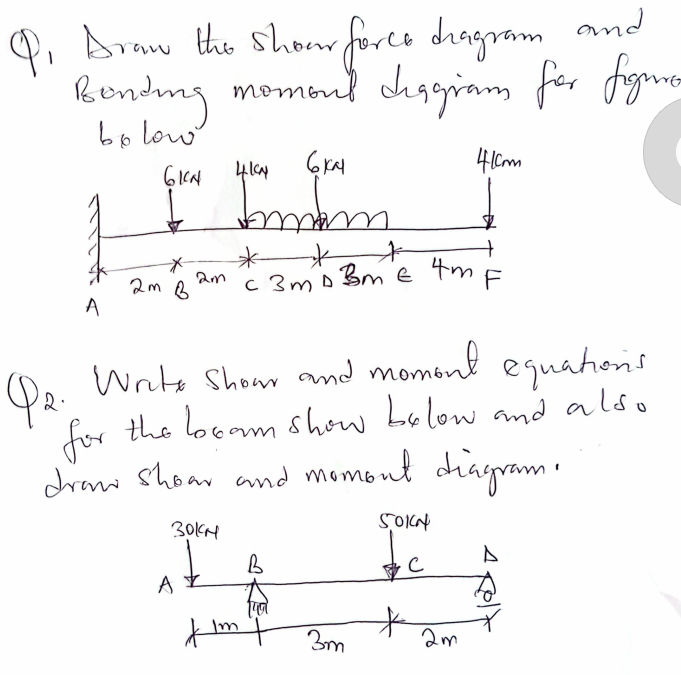 Q1 Draw the shear force diagram and
Bending moment diagram for figure
below
6KN 4KN 6KN 4KNm
2m B 2m C 3m D 3m E 4m F
A
Q2. Write shear and moment equations
for the beam show below and also
draw shear and moment diagram.
30KN 50KN
A B C D
1m 3m 2m